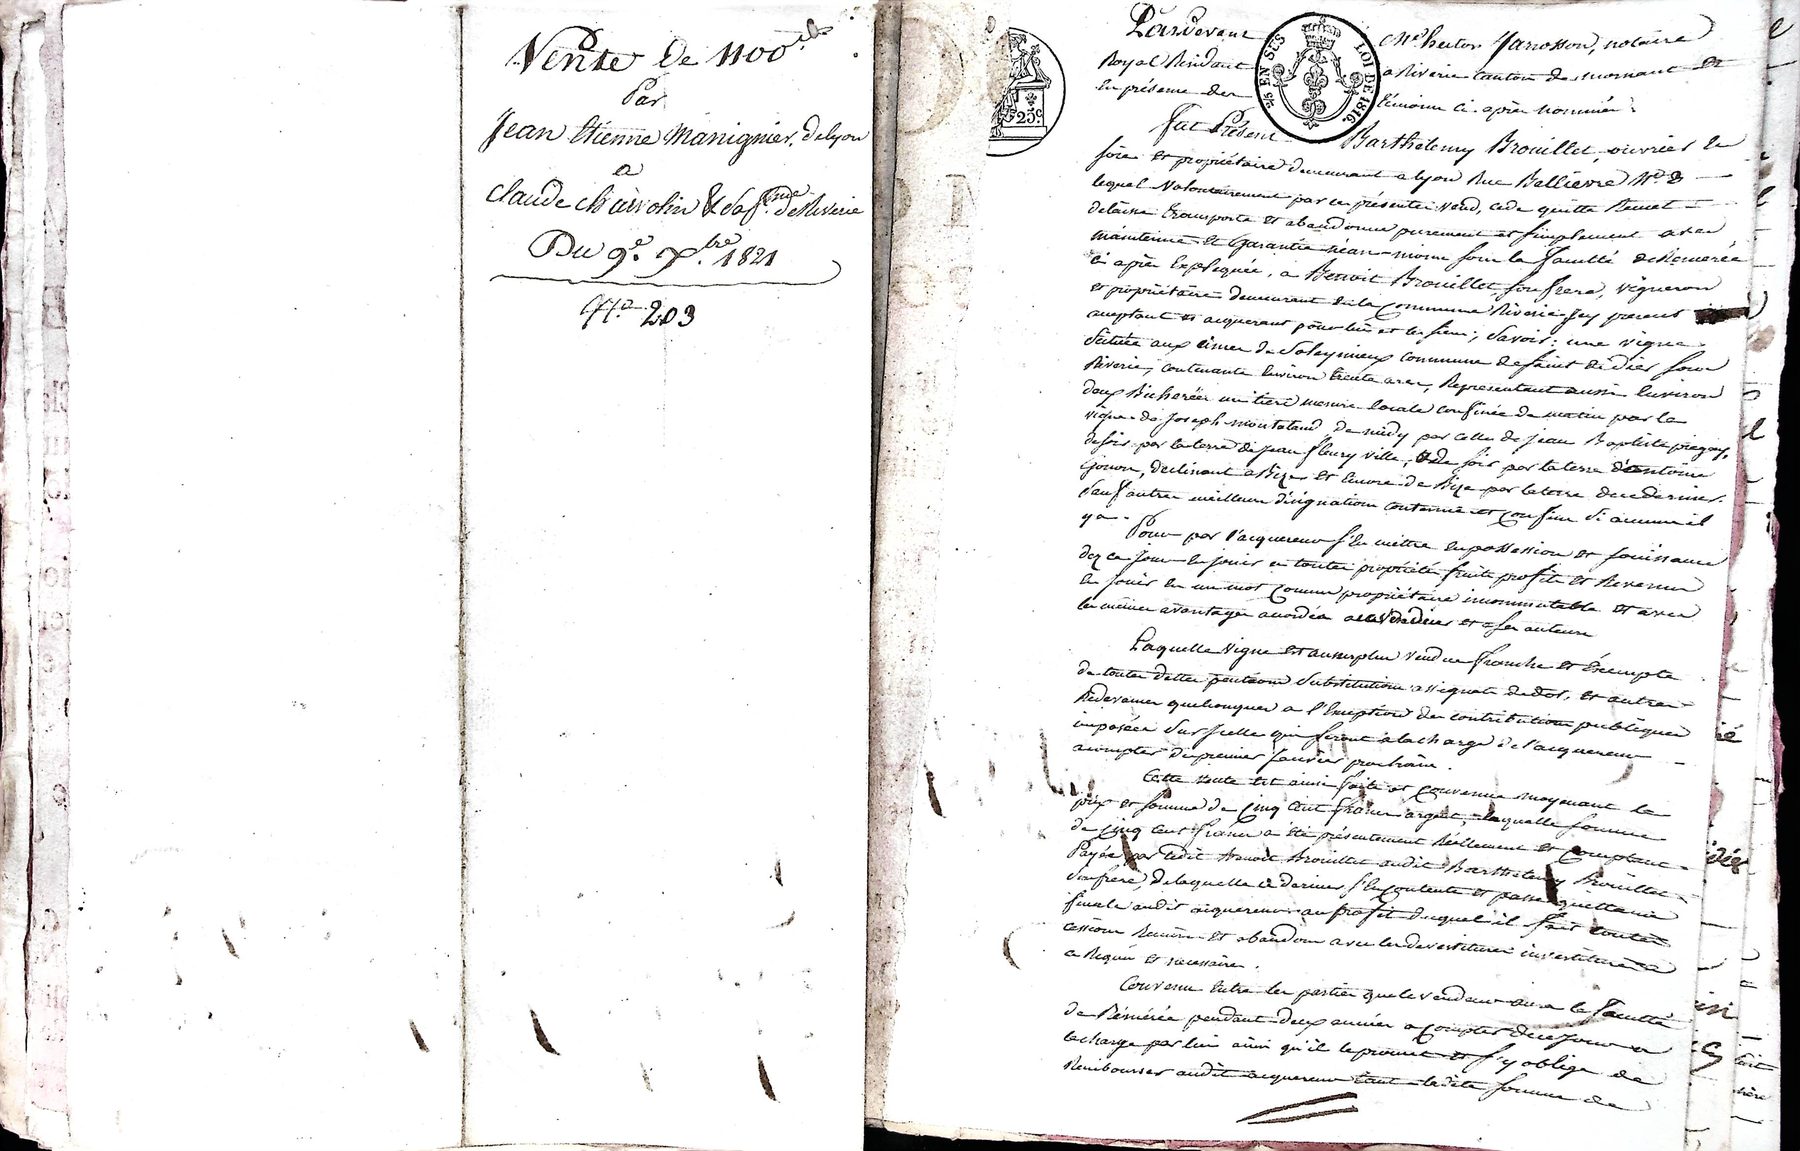 Vente de 1100 ls
Par
Jean Etienne Manignier, de lyon
a
Claude Chirolin & sa fme de Riverie
Du 9e. Xbre. 1821
No. 203
25c.
25 EN SUS
LOI DE 1816.
Pardevant Me hector Janosson, notaire
Royal Résidant a Riverie canton de mornant et
En présence des témoins ci-après nommés.
Fut Présent Barthélemy Brouillet, ouvrier en
soie et propriétaire demeurant a lyon Rue Bellievre No. 8
lequel Volontairement par ces présentes vend, cède quitte Remet
délaisse transporte et abandonne purement et simplement avec
maintenue et Garantie néan-moins sous la faculté de Réméré
ci après Expliquée, a Benoit Brouillet son frere, vigneron
et propriétaire demeurant en la Commune Riverie ici présent
acceptant et acquerant pour lui et les siens; Savoir: une vigne
Située aux cimes de Soleymieux commune de Saint didier sous
Riverie, contenante Environ trente ares, Représentant aussi Environ
deux Bicherées un tiers mesure locale confinée de matin par la
vigne de Joseph montaland de midy par celle de jean Baptiste
de soir par la terre de jean fleury ville, de soir par la terre d'antoine
Gouon, déclinant a Bize et Encore de Bize par la terre de ce dernier.
Sauf autre meilleure désignation contenue et confins si aucuns il
y a.
Pour par l'acquereur s'En mettre En possession et jouissance
dez ce jour En jouir en toute propriété fruits profits et Revenus
En jouir En un mot Comme propriétaire incommutable et avec
les mêmes avantages accordés au Vendeur et a ses auteurs
Laquelle vigne Est au surplus vendue franche et Exempte
de toutes dettes pensions substitution assignats de dot, et autres
Redevances quelconques a l'Exception des contributions publiques
imposées Sur jcelle qui seront a la charge de l'acquereur
a compter du premier janvier prochain.
Cette vente Est ainsi faite et convenue moyenant le
prix et somme de Cinq cent francs argent, laquelle somme
de Cinq cent francs a été présentement Réellement et comptant
Payée par ledit Benoit Brouillet audit Barthelemy Brouillet
son frere, de laquelle ce dernier s'En contente et passe quittance
finale audit acquereur au profit duquel il fait toutes
cessions Remises et abandons avec les devestitures investitures
a Requis et nécessaires.
Convenu Entre les parties que le vendeur aura la faculté
de Réméré pendant deux années a compter de ce jour a
la charge par lui ainsi qu'il le promet et s'y oblige de
Rembourser audit acquereur tant ladite somme de